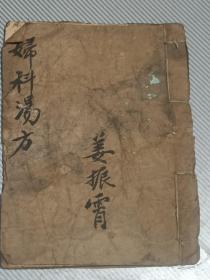 婦科湯方
姜振霄